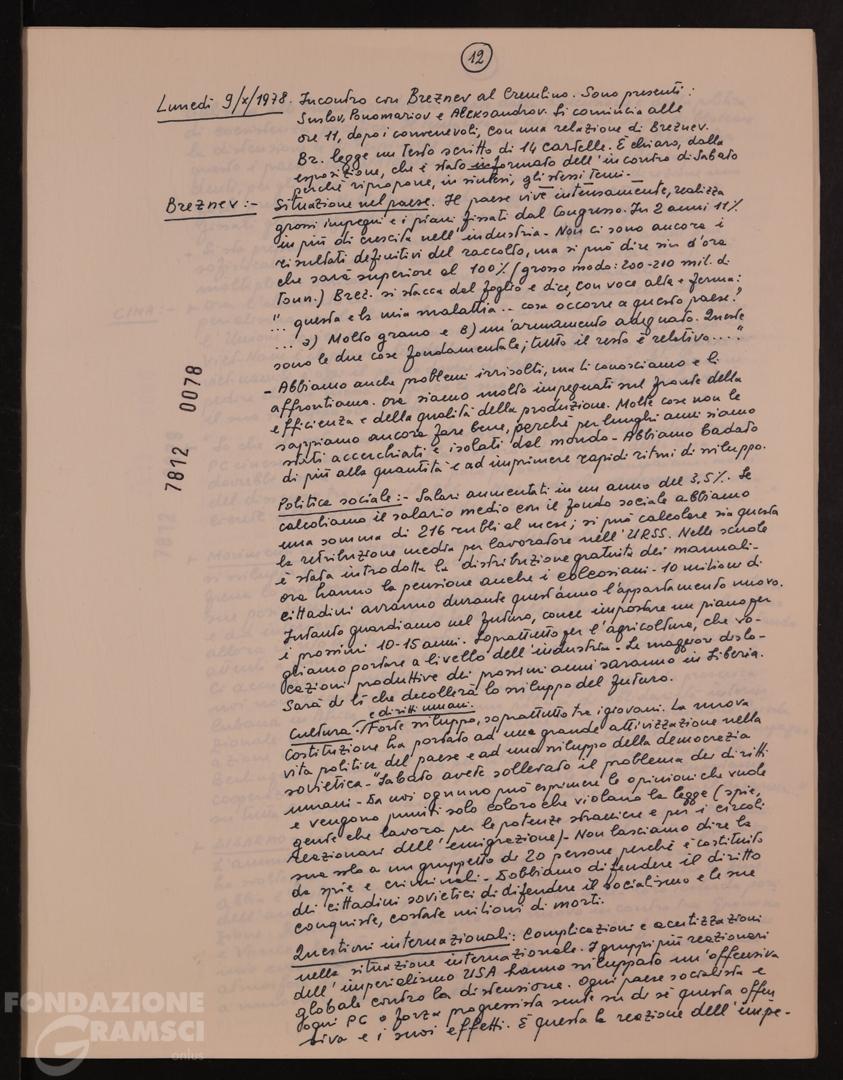 12
Lunedì 9/X/1978. Incontro con Breznev al Cremlino. Sono presenti:
Suslov, Ponomariov e Aleksandrov. Si comincia alle
ore 11, dopo i convenevoli, con una relazione di Breznev.
Br. legge un testo scritto di 14 cartelle. È chiaro, dalla
esposizione, che è stato informato dell'incontro di sabato
perché ripropone, in sintesi, gli stessi temi.-
Breznev :- Situazione nel paese. Il paese vive intensamente, realizza
grossi impegni e i piani fissati dal Congresso. In 2 anni 11%
in più di crescita nell'industria. Non ci sono ancora i
risultati definitivi del raccolto, ma si può dire sin d'ora
che sarà superiore al 100% (grosso modo: 200-210 mil. di
tonn.) Brez. si stacca dal foglio e dice, con voce alta e ferma:
"... questa è la mia malattia.. cosa occorre a questo paese?
... a) Molto grano e B) un'armamento adeguato. Queste
sono le due cose fondamentale; tutto il resto è relativo...."
- Abbiamo anche problemi irrisolti, ma li conosciamo e li
affrontiamo. Ora siamo molto impegnati sul fronte della
efficienza e della qualità della produzione. Molte cose non le
sappiamo ancora fare bene, perché per lunghi anni siamo
stati accerchiati e isolati dal mondo - Abbiamo badato
di più alla quantità e ad imprimere rapidi ritmi di sviluppo.
Politica sociale :- Salari aumentati in un anno del 3,5%. Se
calcoliamo il salario medio con il fondo sociale abbiamo
una somma di 216 rubli al mese; si può calcolare sia questa
la retribuzione media per lavoratore nell'URSS. Nelle scuole
è stata introdotta la distribuzione gratuita dei manuali-
ora hanno la pensione anche i colcosiani - 10 milioni di
cittadini avranno durante quest'anno l'appartamento nuovo.
Intanto guardiamo nel futuro, come impostare un piano per
i prossimi 10-15 anni. Soprattutto per l'agricoltura, che vo-
gliamo portare a livello dell'industria - Le maggiori dislo-
cazioni produttive dei prossimi anni saranno in Siberia.
Sarà di lì che decollerà lo sviluppo del futuro.
Cultura e diritti umani. Forte sviluppo, soprattutto tra i giovani. La nuova
Costituzione ha portato ad una grande attivizzazione nella
vita politica del paese e ad uno sviluppo della democrazia
sovietica - "Sabato avete sollevato il problema dei diritti
umani - Da noi ognuno può esprimere le opinioni che vuole
e vengono puniti solo coloro che violano la legge (spie,
gente che lavora per le potenze straniere e per i circoli
reazionari dell'emigrazione) - Non lasciamo dire la
sua solo a un gruppetto di 20 persone perché è costituito
da spie e criminali - Dobbiamo difendere il diritto
dei cittadini sovietici di difendere il socialismo e le sue
conquiste, costate milioni di morti.
Questioni internazionali: Complicazioni e acutizzazioni
nella situazione internazionale. I gruppi più reazionari
dell'imperialismo USA hanno sviluppato un'offensiva
globale contro la distensione. Ogni paese socialista e
ogni PC o forza progressista sente su di sé questa offen
siva e i suoi effetti. È questa la reazione dell'impe-
7812 0078
CINA:-
FONDAZIONE
GRAMSCI
onlus